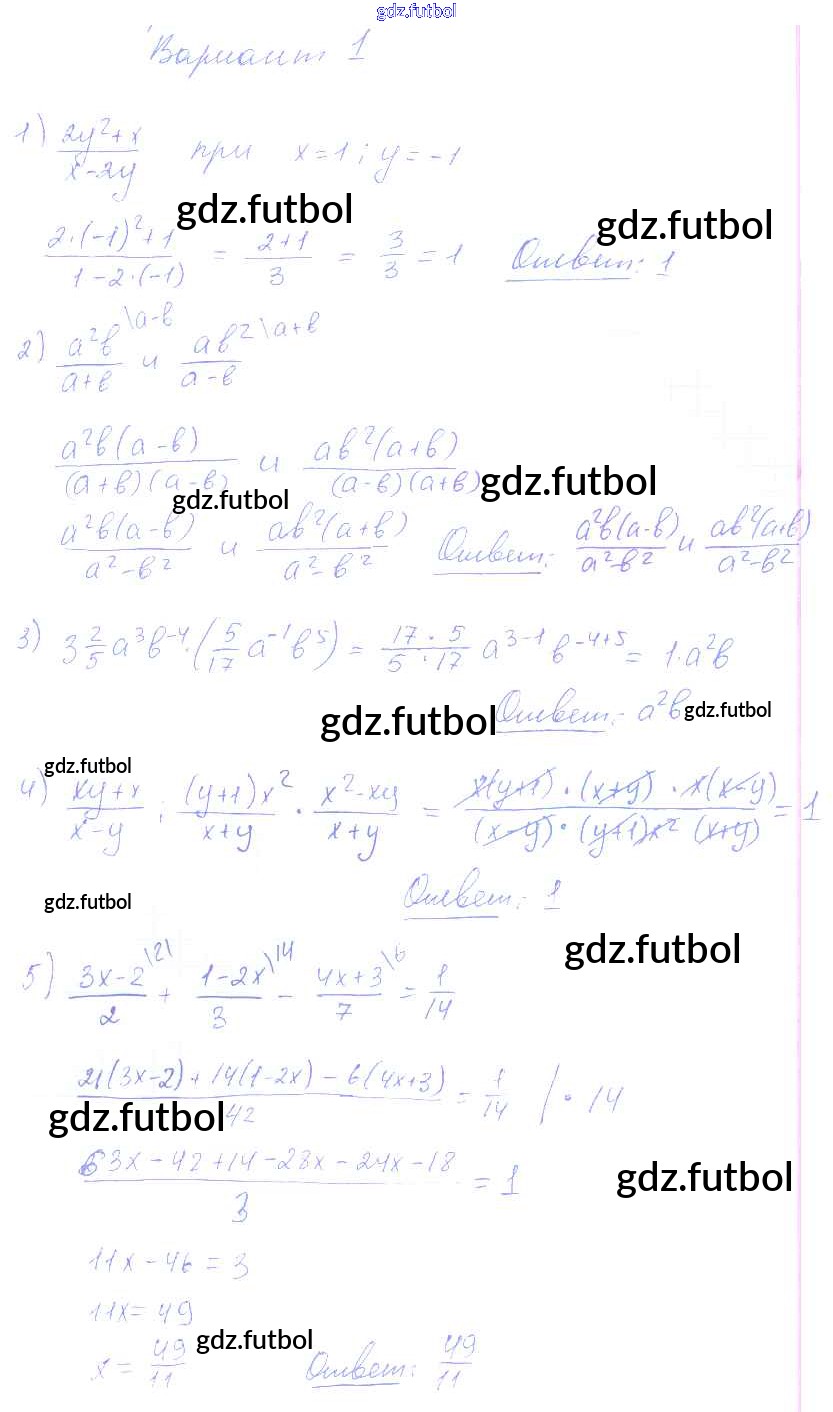 gdz.futbol
Вариант 1
1) (2y²+x)/(x-2y) при x=1; y=-1
gdz.futbol gdz.futbol
(2·(-1)²+1)/(1-2·(-1)) = (2+1)/3 = 3/3 = 1 Ответ: 1
2) a²b\a-b /(a+b) и ab²\a+b /(a-b)
a²b(a-b)/((a+b)(a-b)) и ab²(a+b)/((a-b)(a+b)) gdz.futbol
gdz.futbol
a²b(a-b)/(a²-b²) и ab²(a+b)/(a²-b²) Ответ: a²b(a-b)/(a²-b²) и ab²(a+b)/(a²-b²)
3) 3 2/5 a³b⁻⁴·(5/17 a⁻¹b⁵) = (17·5)/(5·17) a³⁻¹b⁻⁴⁺⁵ = 1·a²b
gdz.futbol Ответ: a²b gdz.futbol
gdz.futbol
4) (xy+x)/(x-y) : ((y+1)x²)/(x+y) · (x²-xy)/(x+y) = (x(y+1)·(x+y)·x(x-y))/((x-y)·(y+1)x²(x+y)) = 1
gdz.futbol Ответ: 1
gdz.futbol
5) (3x-2)\21 /2 + (1-2x)\14 /3 - (4x+3)\6 /7 = 1/14
(21(3x-2)+14(1-2x)-6(4x+3))/42 = 1/14 |·14
gdz.futbol
(63x-42+14-28x-24x-18)/3 = 1
gdz.futbol
11x-46=3
11x=49
gdz.futbol
x = 49/11 Ответ: 49/11